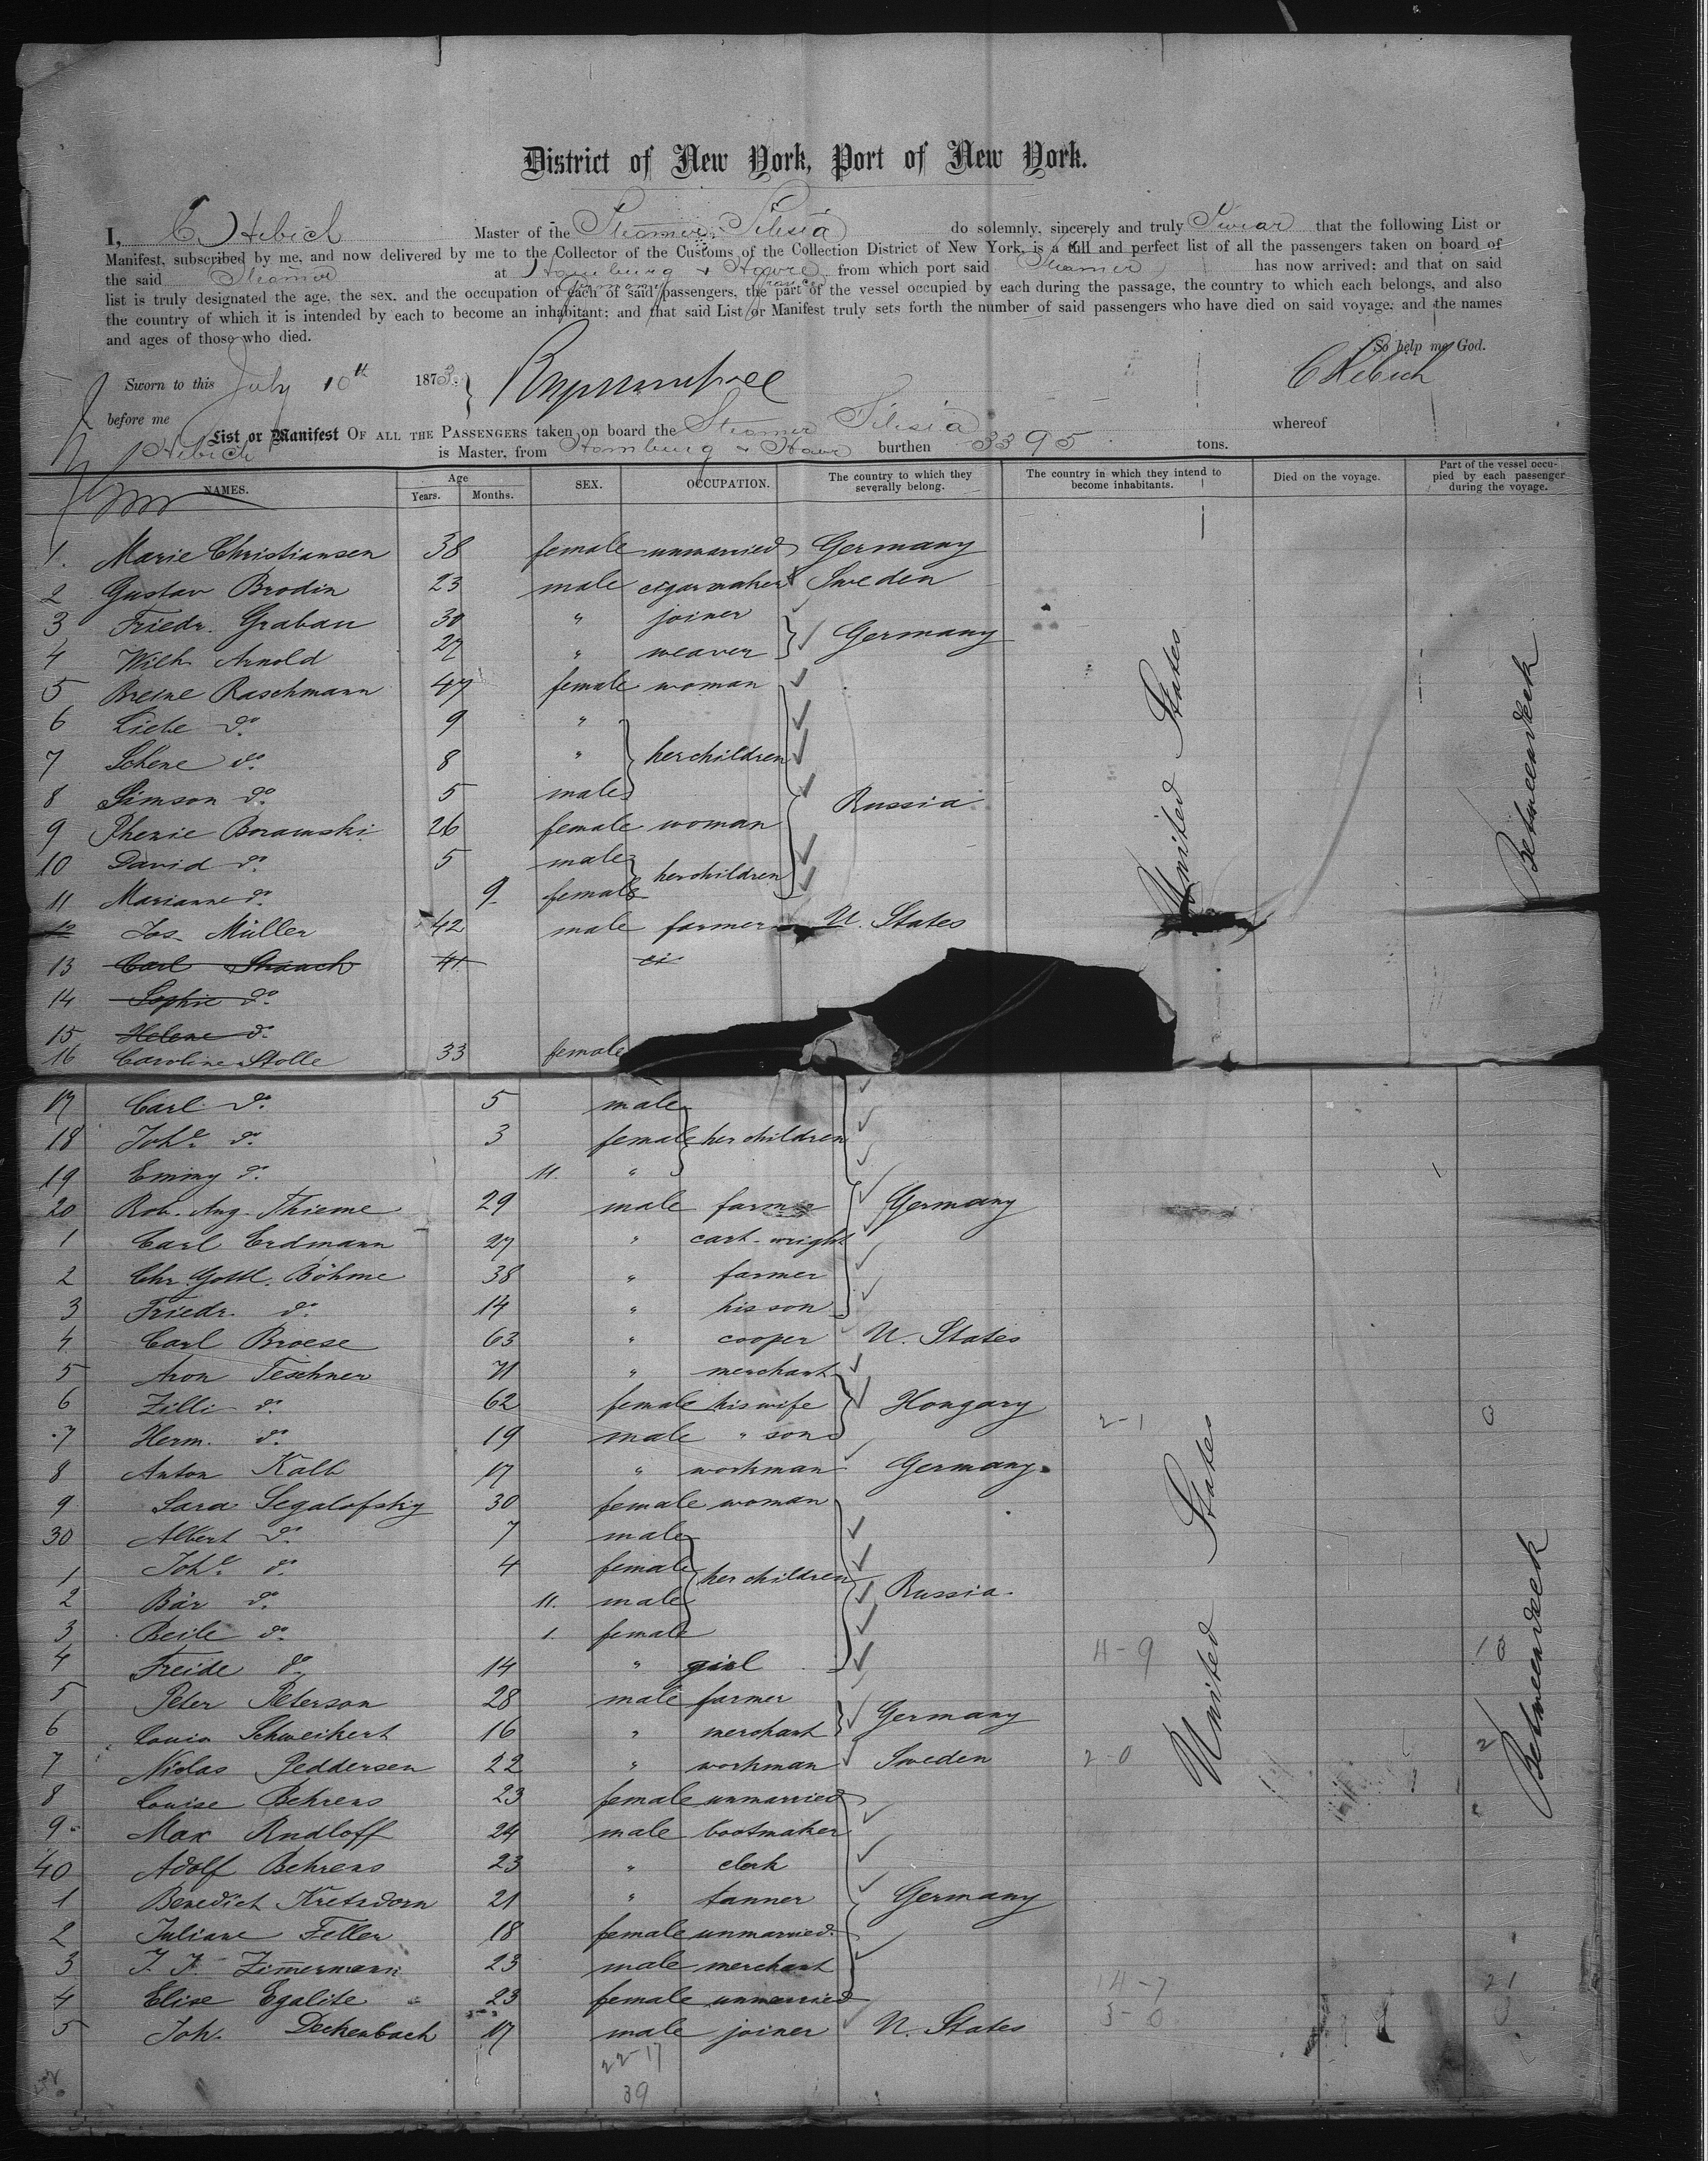 District of New York, Port of New York.
I, C Hebich Master of the Steamer Silesia do solemnly, sincerely and truly Swear that the following List or
Manifest, subscribed by me, and now delivered by me to the Collector of the Customs of the Collection District of New York, is a full and perfect list of all the passengers taken on board of
the said Steamer at Hamburg & Havre from which port said Steamer has now arrived; and that on said
list is truly designated the age, the sex, and the occupation of each of said passengers, the part of the vessel occupied by each during the passage, the country to which each belongs, and also
the country of which it is intended by each to become an inhabitant; and that said List or Manifest truly sets forth the number of said passengers who have died on said voyage, and the names
and ages of those who died. So help me God.
Sworn to this July 10th 1873. C Hebich
before me whereof
List or Manifest OF ALL THE PASSENGERS taken on board the Steamer Silesia
Hebich is Master, from Hamburg & Havre burthen 3395 tons.
NAMES. Age Years. Months. SEX. OCCUPATION. The country to which they severally belong. The country in which they intend to become inhabitants. Died on the voyage. Part of the vessel occupied by each passenger during the voyage.
1. Marie Christiansen 38 female unmarried Germany
2 Gustav Brodin 23 male cigarmaker Sweden
3 Friedr. Grabau 30 " joiner
Germany
4 Wilh. Arnold 27 " weaver
5 Breine Raschmann 47 female woman
6 Liebe do. 9 "
7 Schene do. 8 " her children
8 Simson do. 5 male
Russia
9 Therie Borawski 26 female woman
10 David do. 5 male
her children
11 Marianne do. 9 female
12 Jos. Müller 42 male farmer U. States
13 Carl Strauch 41
14 Sophie do.
15 Helene do.
16 Caroline Stolle 33 female
United States
Betweendeck
17 Carl do. 5 male
18 Johe. do. 3 female her children
19 Emmy do. 11. "
20 Rob. Aug. Thieme 29 male farmer Germany
1 Carl Erdmann 27 " cart-wright
2 Chr. Gottl. Böhme 38 " farmer
3 Friedr. do. 14 " his son
4 Carl Broese 63 " cooper U. States
5 Aron Teschner 71 " merchant
6 Zilli do. 62 female his wife Hongary
2-1 0
7 Herm. do. 19 male " son
8 Anton Kalb 17 " workman Germany
9 Sara Segalofsky 30 female woman
30 Albert do. 7 male
1 Johe. do. 4 female her children
2 Bär do. 11. male Russia
3 Beile do. 1. female
4 Freide do. 14 " girl 11-9 10
5 Peter Peterson 28 male farmer
Germany
6 Louis Schweikert 16 " merchant
7 Niclas Peddersen 22 " workman Sweden 2-0 2
8 Louise Behrens 23 female unmarried
9 Max Rudloff 24 male bootmaker
40 Adolf Behrens 23 " clerk
1 Benedict Kretzdorn 21 " tanner Germany
2 Juliane Feller 18 female unmarried
3 J. J. Zimmermann 23 male merchant
4 Elise Egalite 23 female unmarried 14-7 21
5 Joh. Deckenbach 17 male joiner U. States 3-0 0
United States
Betweendeck
22-17
39